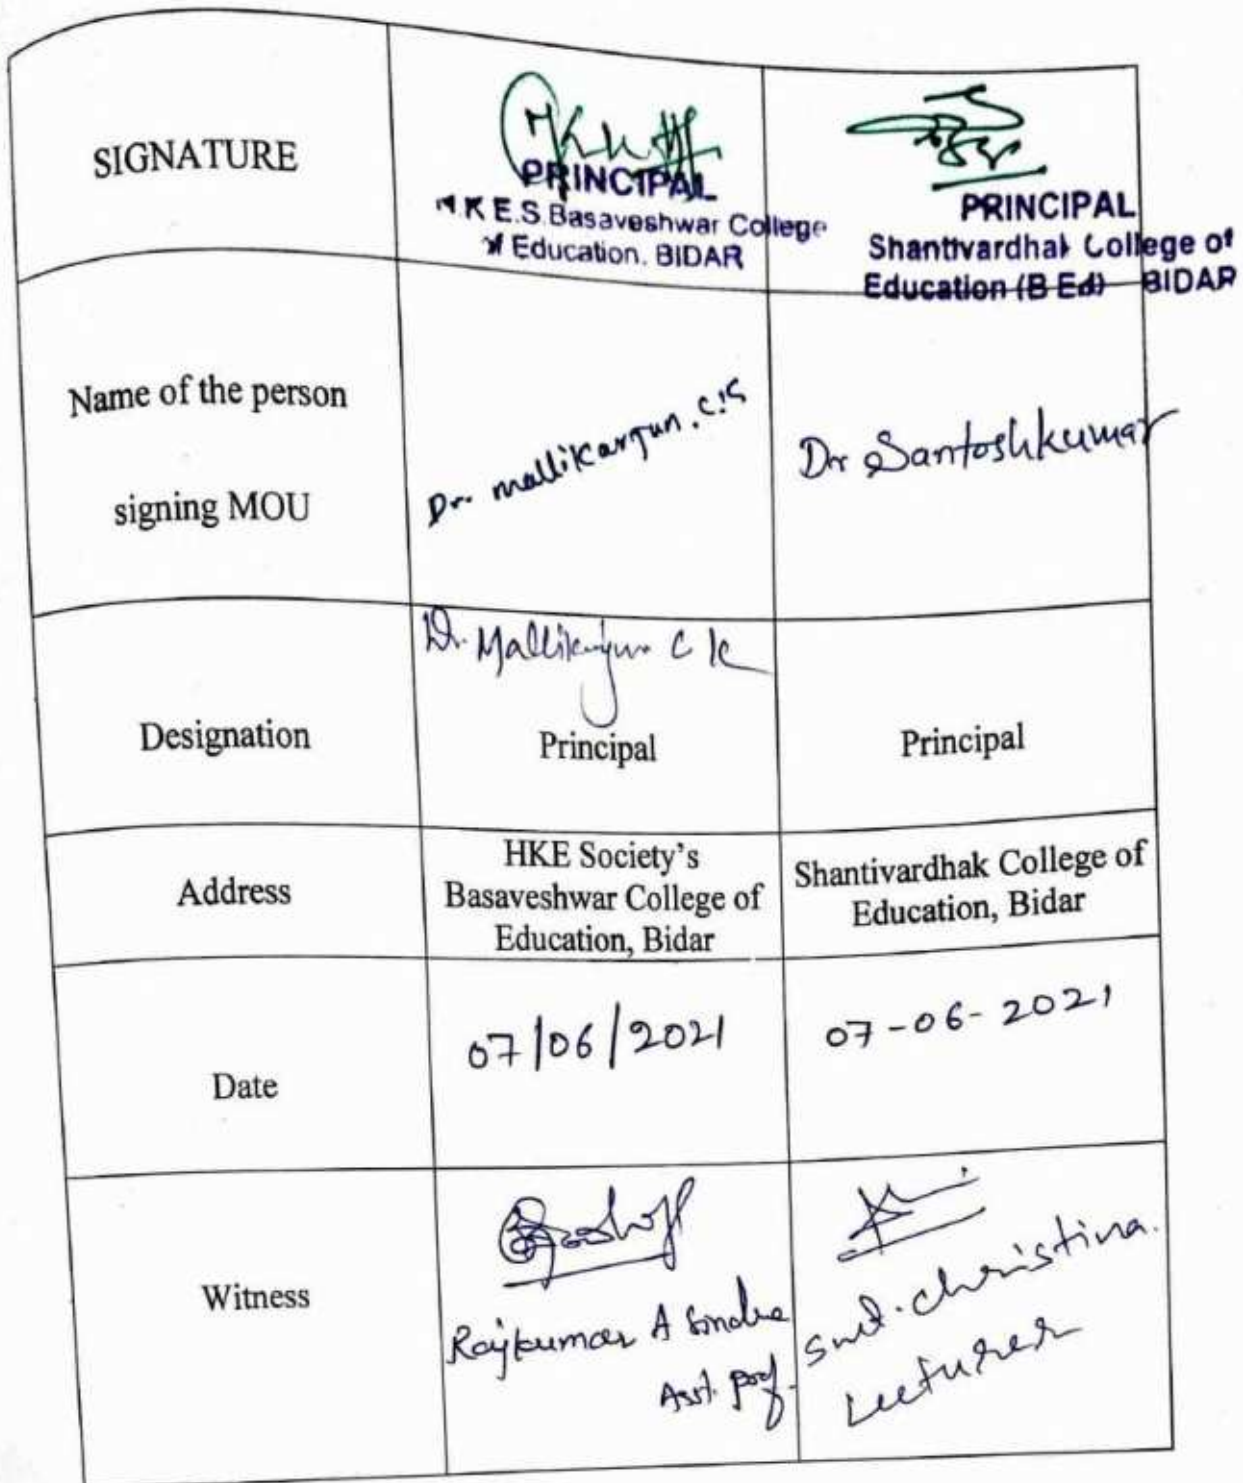 SIGNATURE
PRINCIPAL
H.K E.S Basaveshwar College
of Education. BIDAR
PRINCIPAL
Shantivardhak College of
Education (B Ed) BIDAR
Name of the person
signing MOU
Dr. mallikarjun. C.K
Dr Santoshkumar
Designation
Dr. Mallikarjun C K
Principal
Principal
Address
HKE Society's
Basaveshwar College of
Education, Bidar
Shantivardhak College of
Education, Bidar
Date
07/06/2021
07-06-2021
Witness
Rajkumar A
Asst. prof.
Smt. christina.
Lecturer